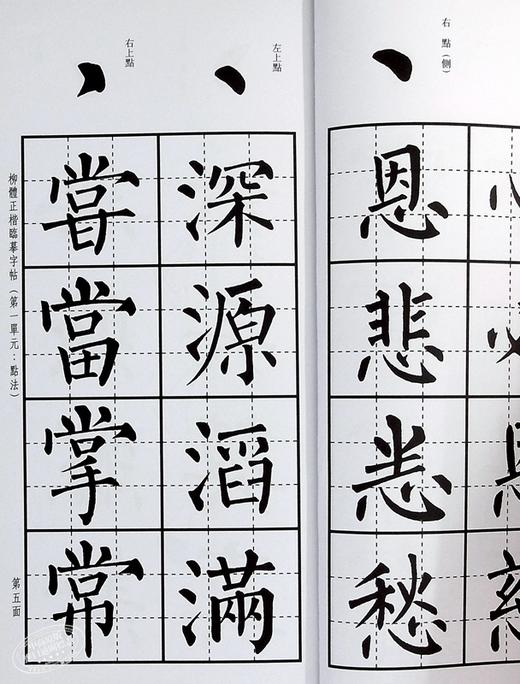 右點（側）
恩
悲
恙
愁
左上點
深
源
滔
滿
右上點
甞
當
掌
常
柳體正楷臨摹字帖（第一單元：點法）
第五面